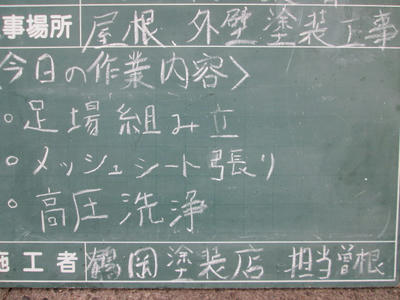 事場所 屋根、外壁塗装工事
今日の作業内容〉
○足場組み立
○メッシュシート張り
○高圧洗浄
施工者 鶴岡塗装店 担当曽根